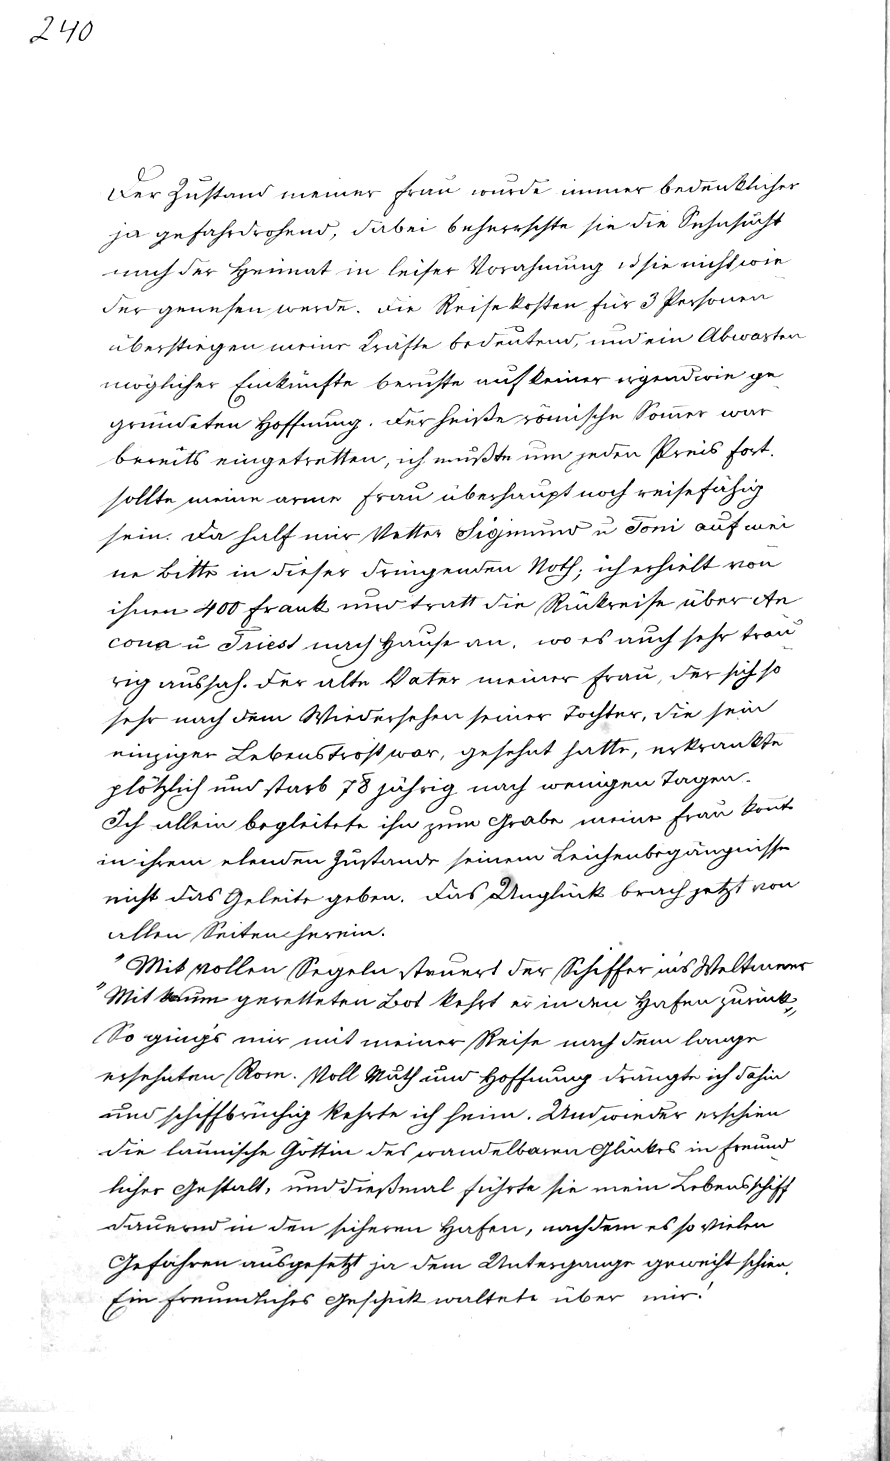 240
Der Zustand meiner Frau wurde immer bedenklicher
ja gefahrdrohend, dabei beherrschte sie die Sehnsucht
nach der Heimat in leiser Vorahnung sie nicht wie
der genesen werde. Die Reisekosten für 3 Personen
überstiegen meine Kräfte bedeutend, und ein Abwarten
möglicher Einkünfte beruhte auf keiner irgendwie ge
gründeten Hoffnung. Der heiße römische Som̅er war
bereits eingetretten, ich mußte um jeden Preis fort.
sollte meine arme Frau überhaupt noch reisefähig
sein. Da half mir Vetter Sigmund u Toni auf mei
ne Bitte in dieser dringenden Noth; ich erhielt von
ihnen 400 Frank und tratt die Rükreise über An
cona u Triest nach Hause an, wo es auch sehr trau
rig aussah. Der alte Vater meiner Frau, der sich so
sehr nach dem Wiedersehen seiner Tochter, die sein
einziger Lebenstrost war, gesehnt hatte, erkrankte
plötzlich und starb 78 jährig nach wenigen Tagen.
Ich allein begleitete ihn zum Grabe meine Frau kon̅te
in ihrem elenden Zustande seinem Leichenbegängnisse
nicht das Geleite geben. Das Unglück brach jetzt von
allen Seiten herein.
"Mit vollen Segeln steuert der Schiffer in's Weltmeer
"Mit kaum geretteten Bot kehrt er in den Hafen zurük"
So ging's mir mit meiner Reise nach dem lange
ersehnten Rom. Voll Muth und Hoffnung drängte ich dahin
und schiffbrüchig kehrte ich heim. Und wieder erschien
die launische Göttin des wandelbaren Glükes in freund
licher Gestalt, und dießmal führte sie mein Lebensschiff
dauernd in den sicheren Hafen, nachdem es so vielen
Gefahren ausgesetzt ja dem Untergange geweiht schien.
Ein freundliches Geschik waltete über mir!